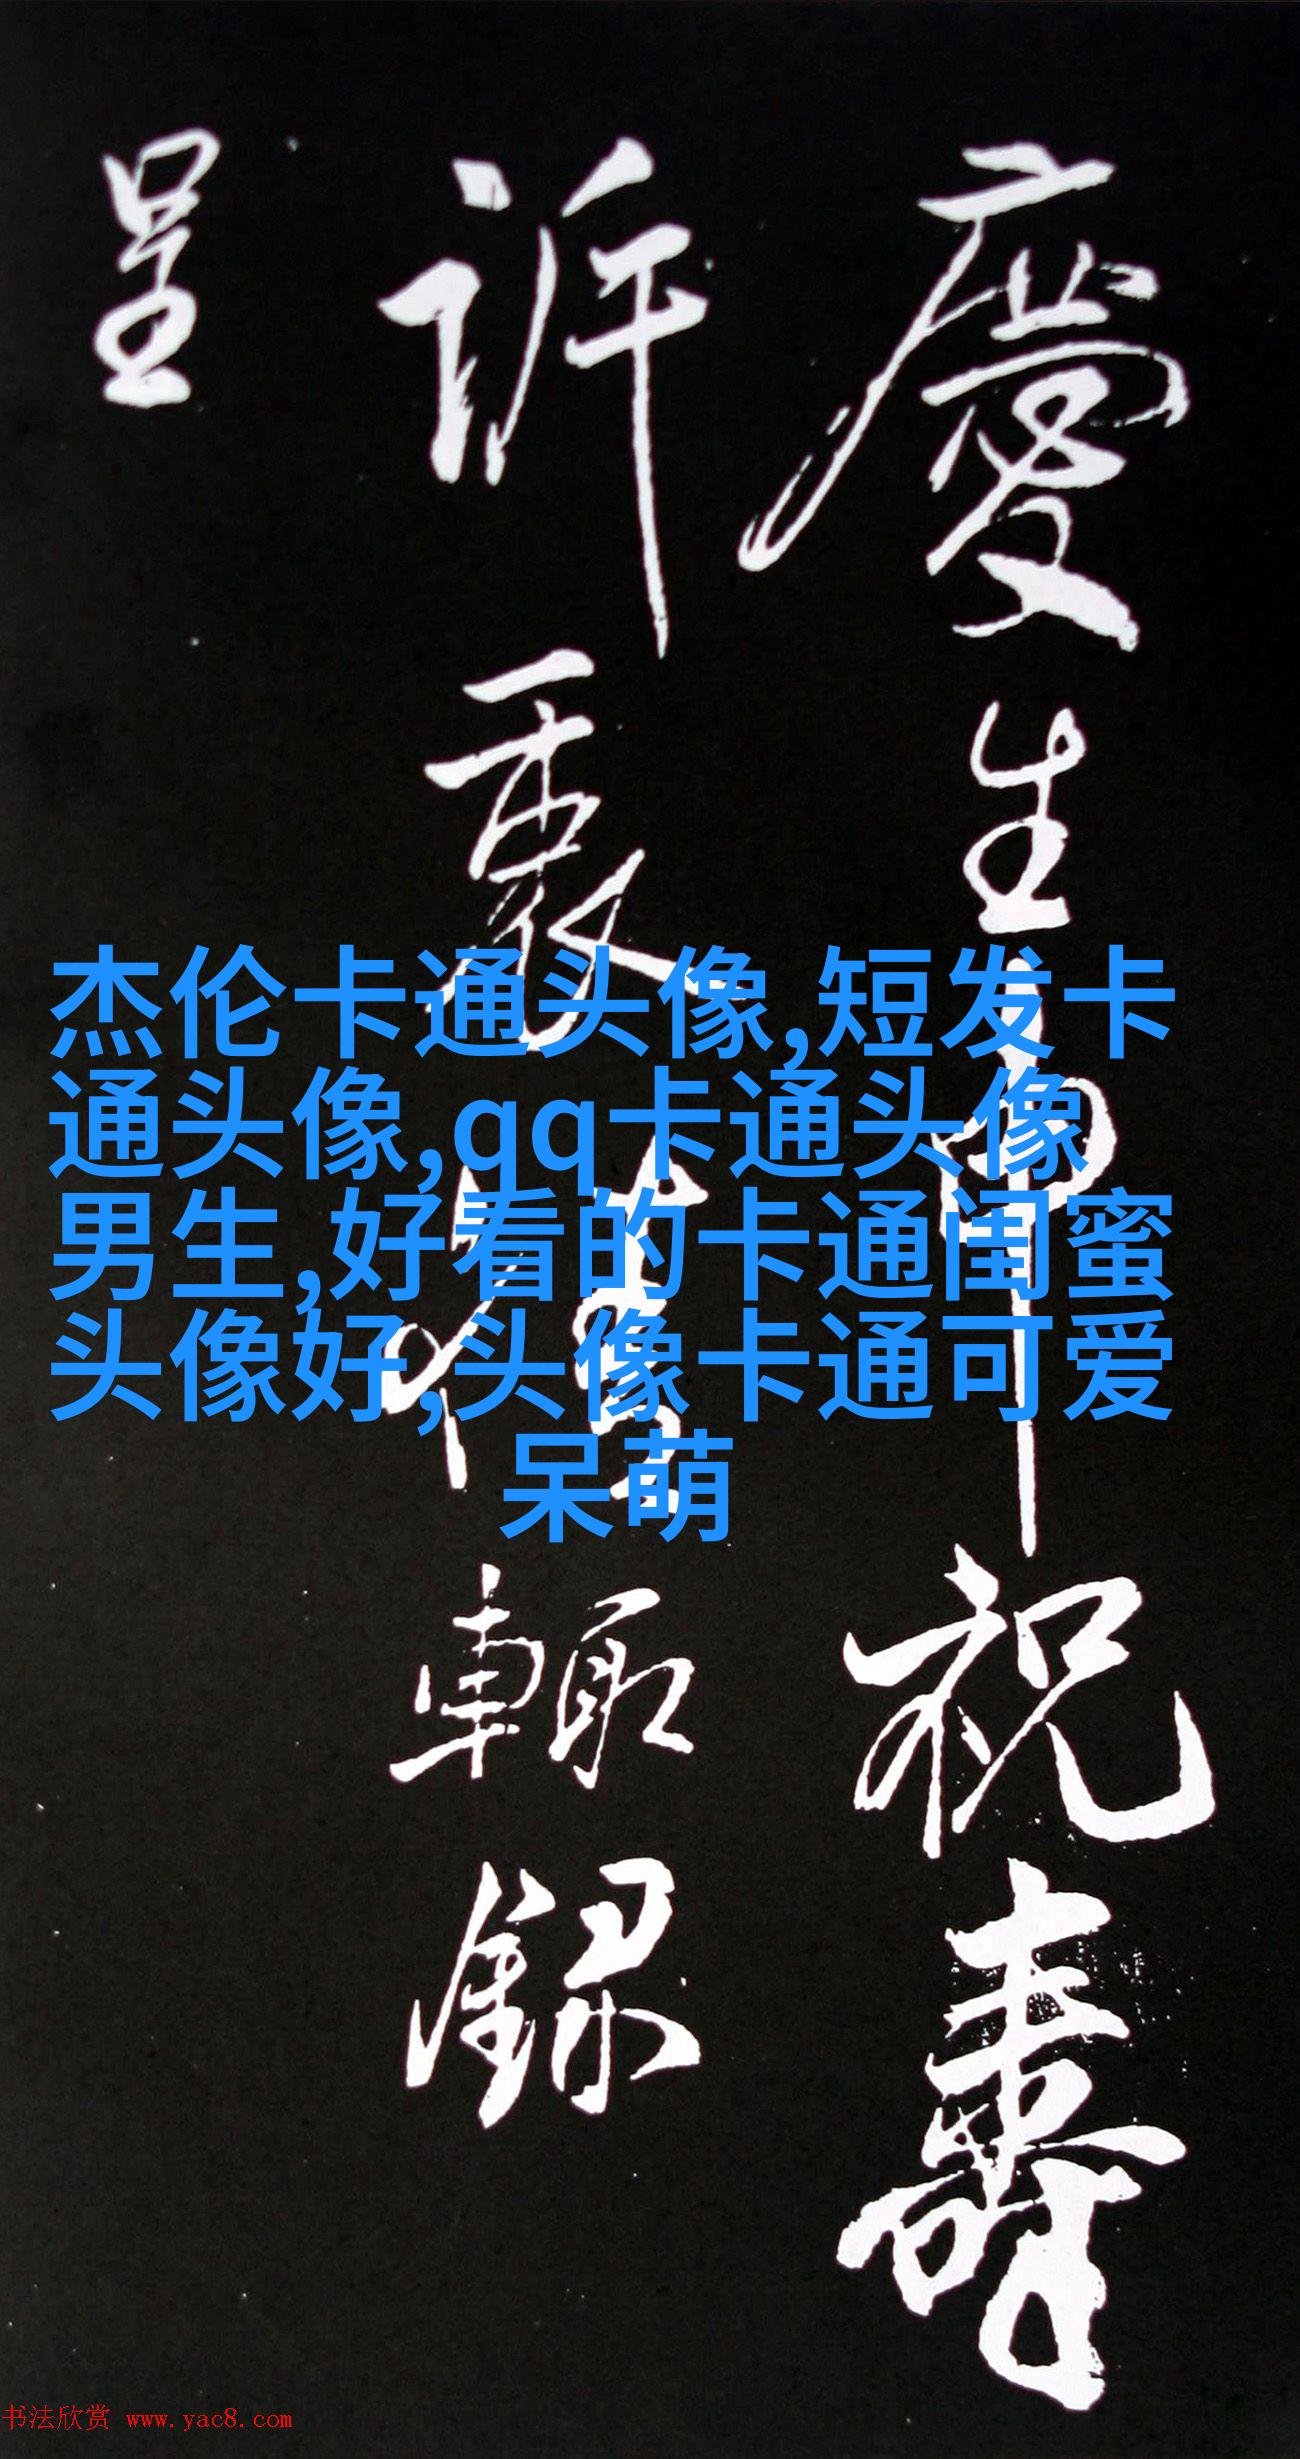 慶生申祝壽
訢裏價輙錄
呈
杰伦卡通头像,短发卡
通头像,qq卡通头像
男生,好看的卡通闺蜜
头像好,头像卡通可爱
呆萌
书法欣赏 www.yac8.com